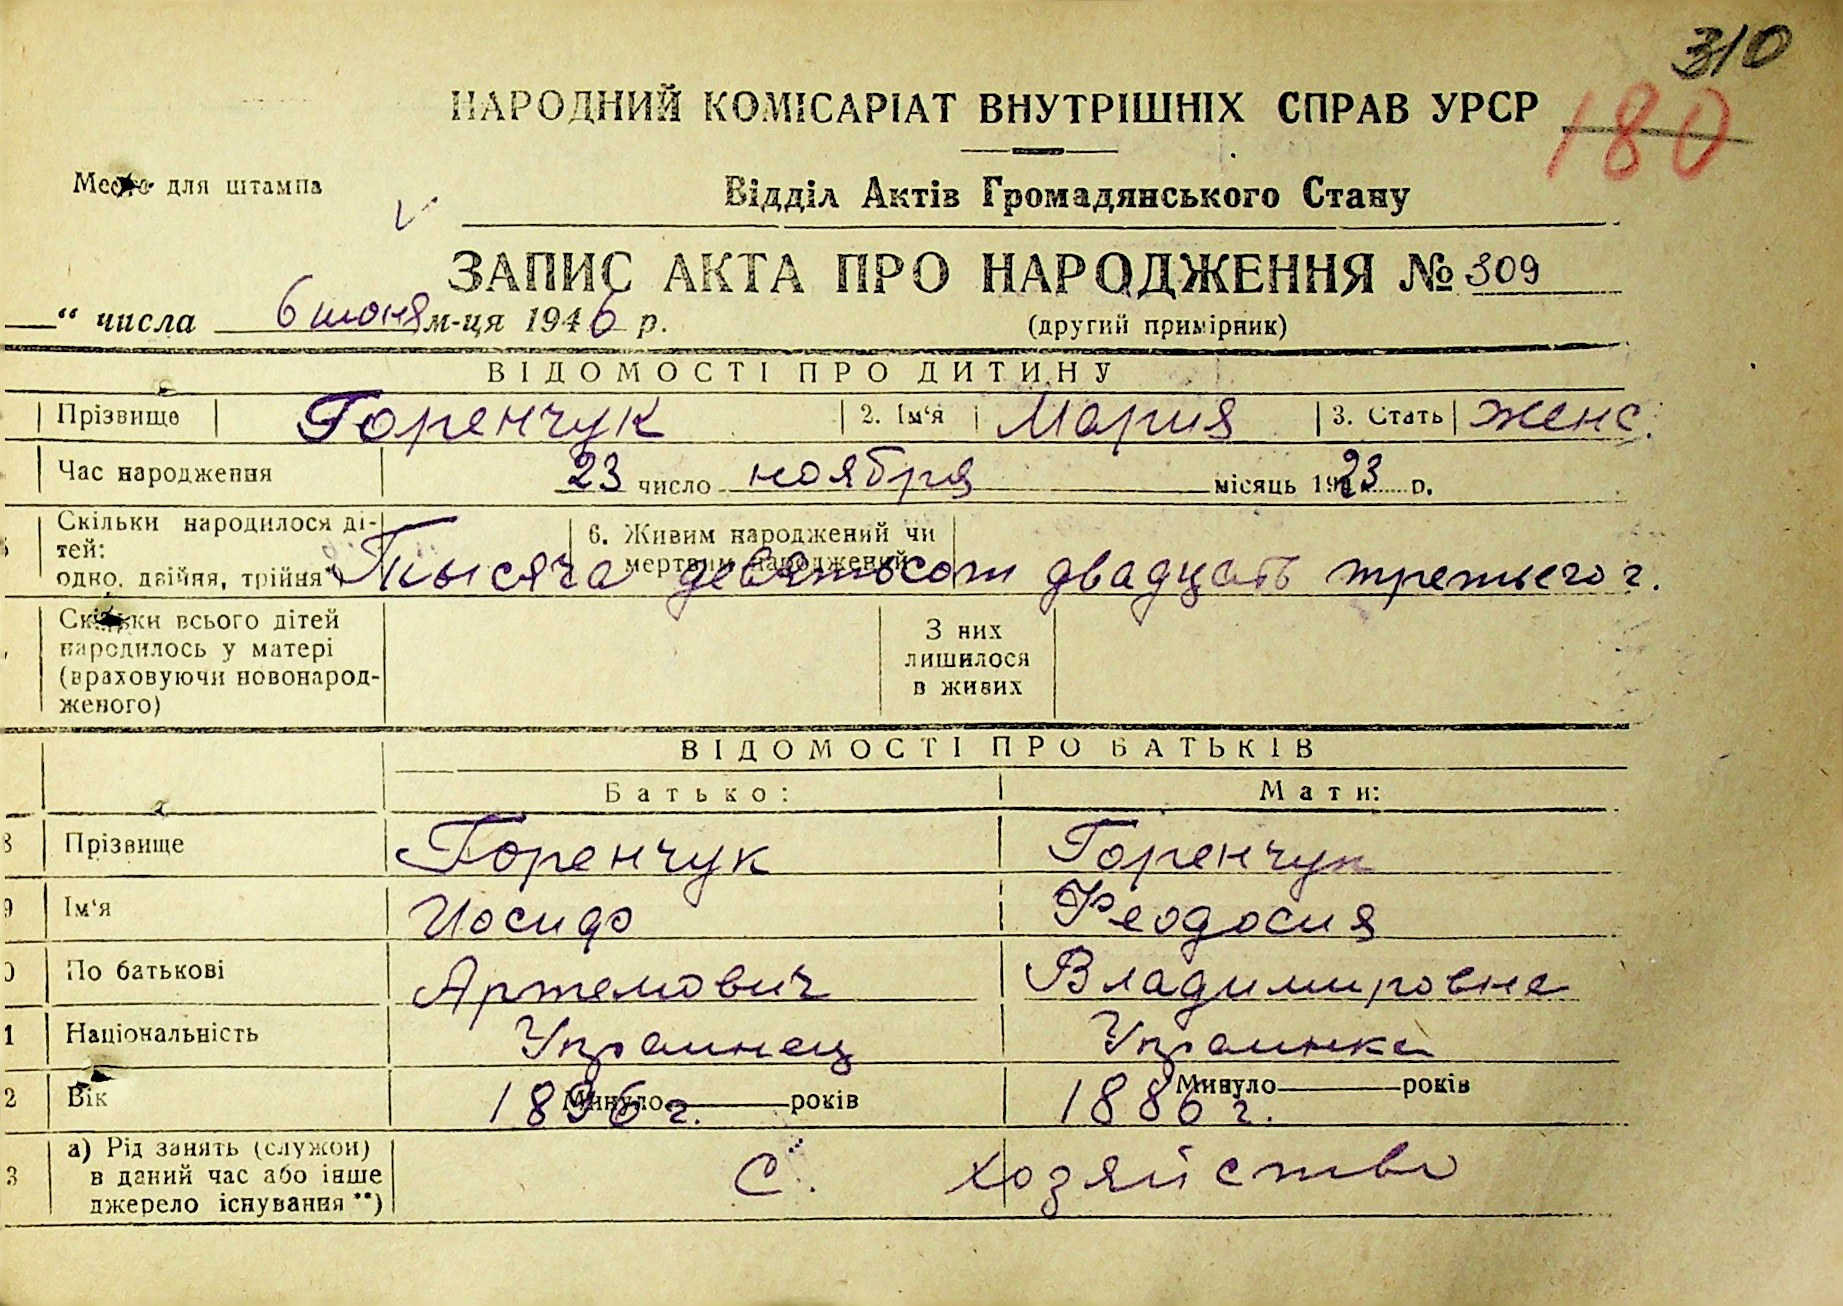 310
180
НАРОДНИЙ КОМІСАРІАТ ВНУТРІШНІХ СПРАВ УРСР
Место для штампа
Відділ Актів Громадянського Стану
ЗАПИС АКТА ПРО НАРОДЖЕННЯ № 309
“ числа 6 июня м-ця 1946 р.
(другий примірник)
ВІДОМОСТІ ПРО ДИТИНУ
Прізвище Горенчук 2. Ім‘я Мария 3. Стать женс.
Час народження 23 число ноября місяць 1923 р.
Скільки народилося ді-
тей:
одно, двійня, трійня
6. Живим народжений чи
мертвим народжений
Тысяча девятьсот двадцать третьего г.
Скільки всього дітей
народилось у матері
(враховуючи новонарод-
женого)
З них
лишилося
в живих
ВІДОМОСТІ ПРО БАТЬКІВ
Батько: Мати:
8 Прізвище Горенчук Горенчук
9 Ім‘я Иосиф Феодосия
0 По батькові Артемович Владимировна
1 Національність Украинец Украинка
2 Вік Минуло років 1886 г. Минуло років
3 а) Рід занять (служби)
в даний час або інше
джерело існування **)
С. хозяйство